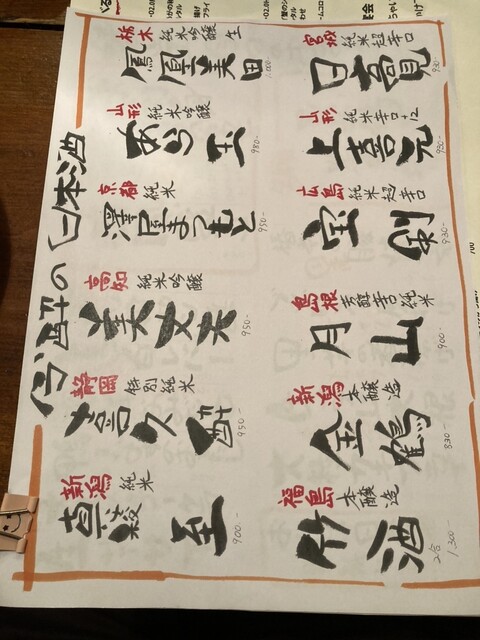 今酔の日本酒
栃木 純米吟醸 生
鳳凰美田 1,000-
山形 純米吟醸
あら玉 980-
京都 純米
澤屋まつもと 950-
高知 純米吟醸
美丈夫 950-
静岡 特別純米
喜久酔 950-
新潟 純米
真稜 至 900-
宮城 純米超辛口
日高見 930-
山形 純米辛口+12
上喜元 930-
広島 純米超辛口
宝剣 930-
島根 芳醇辛口純米
月山 900-
新潟 本醸造
金鶴 830-
福島 本醸造
竹酒 2合 1,300-
700